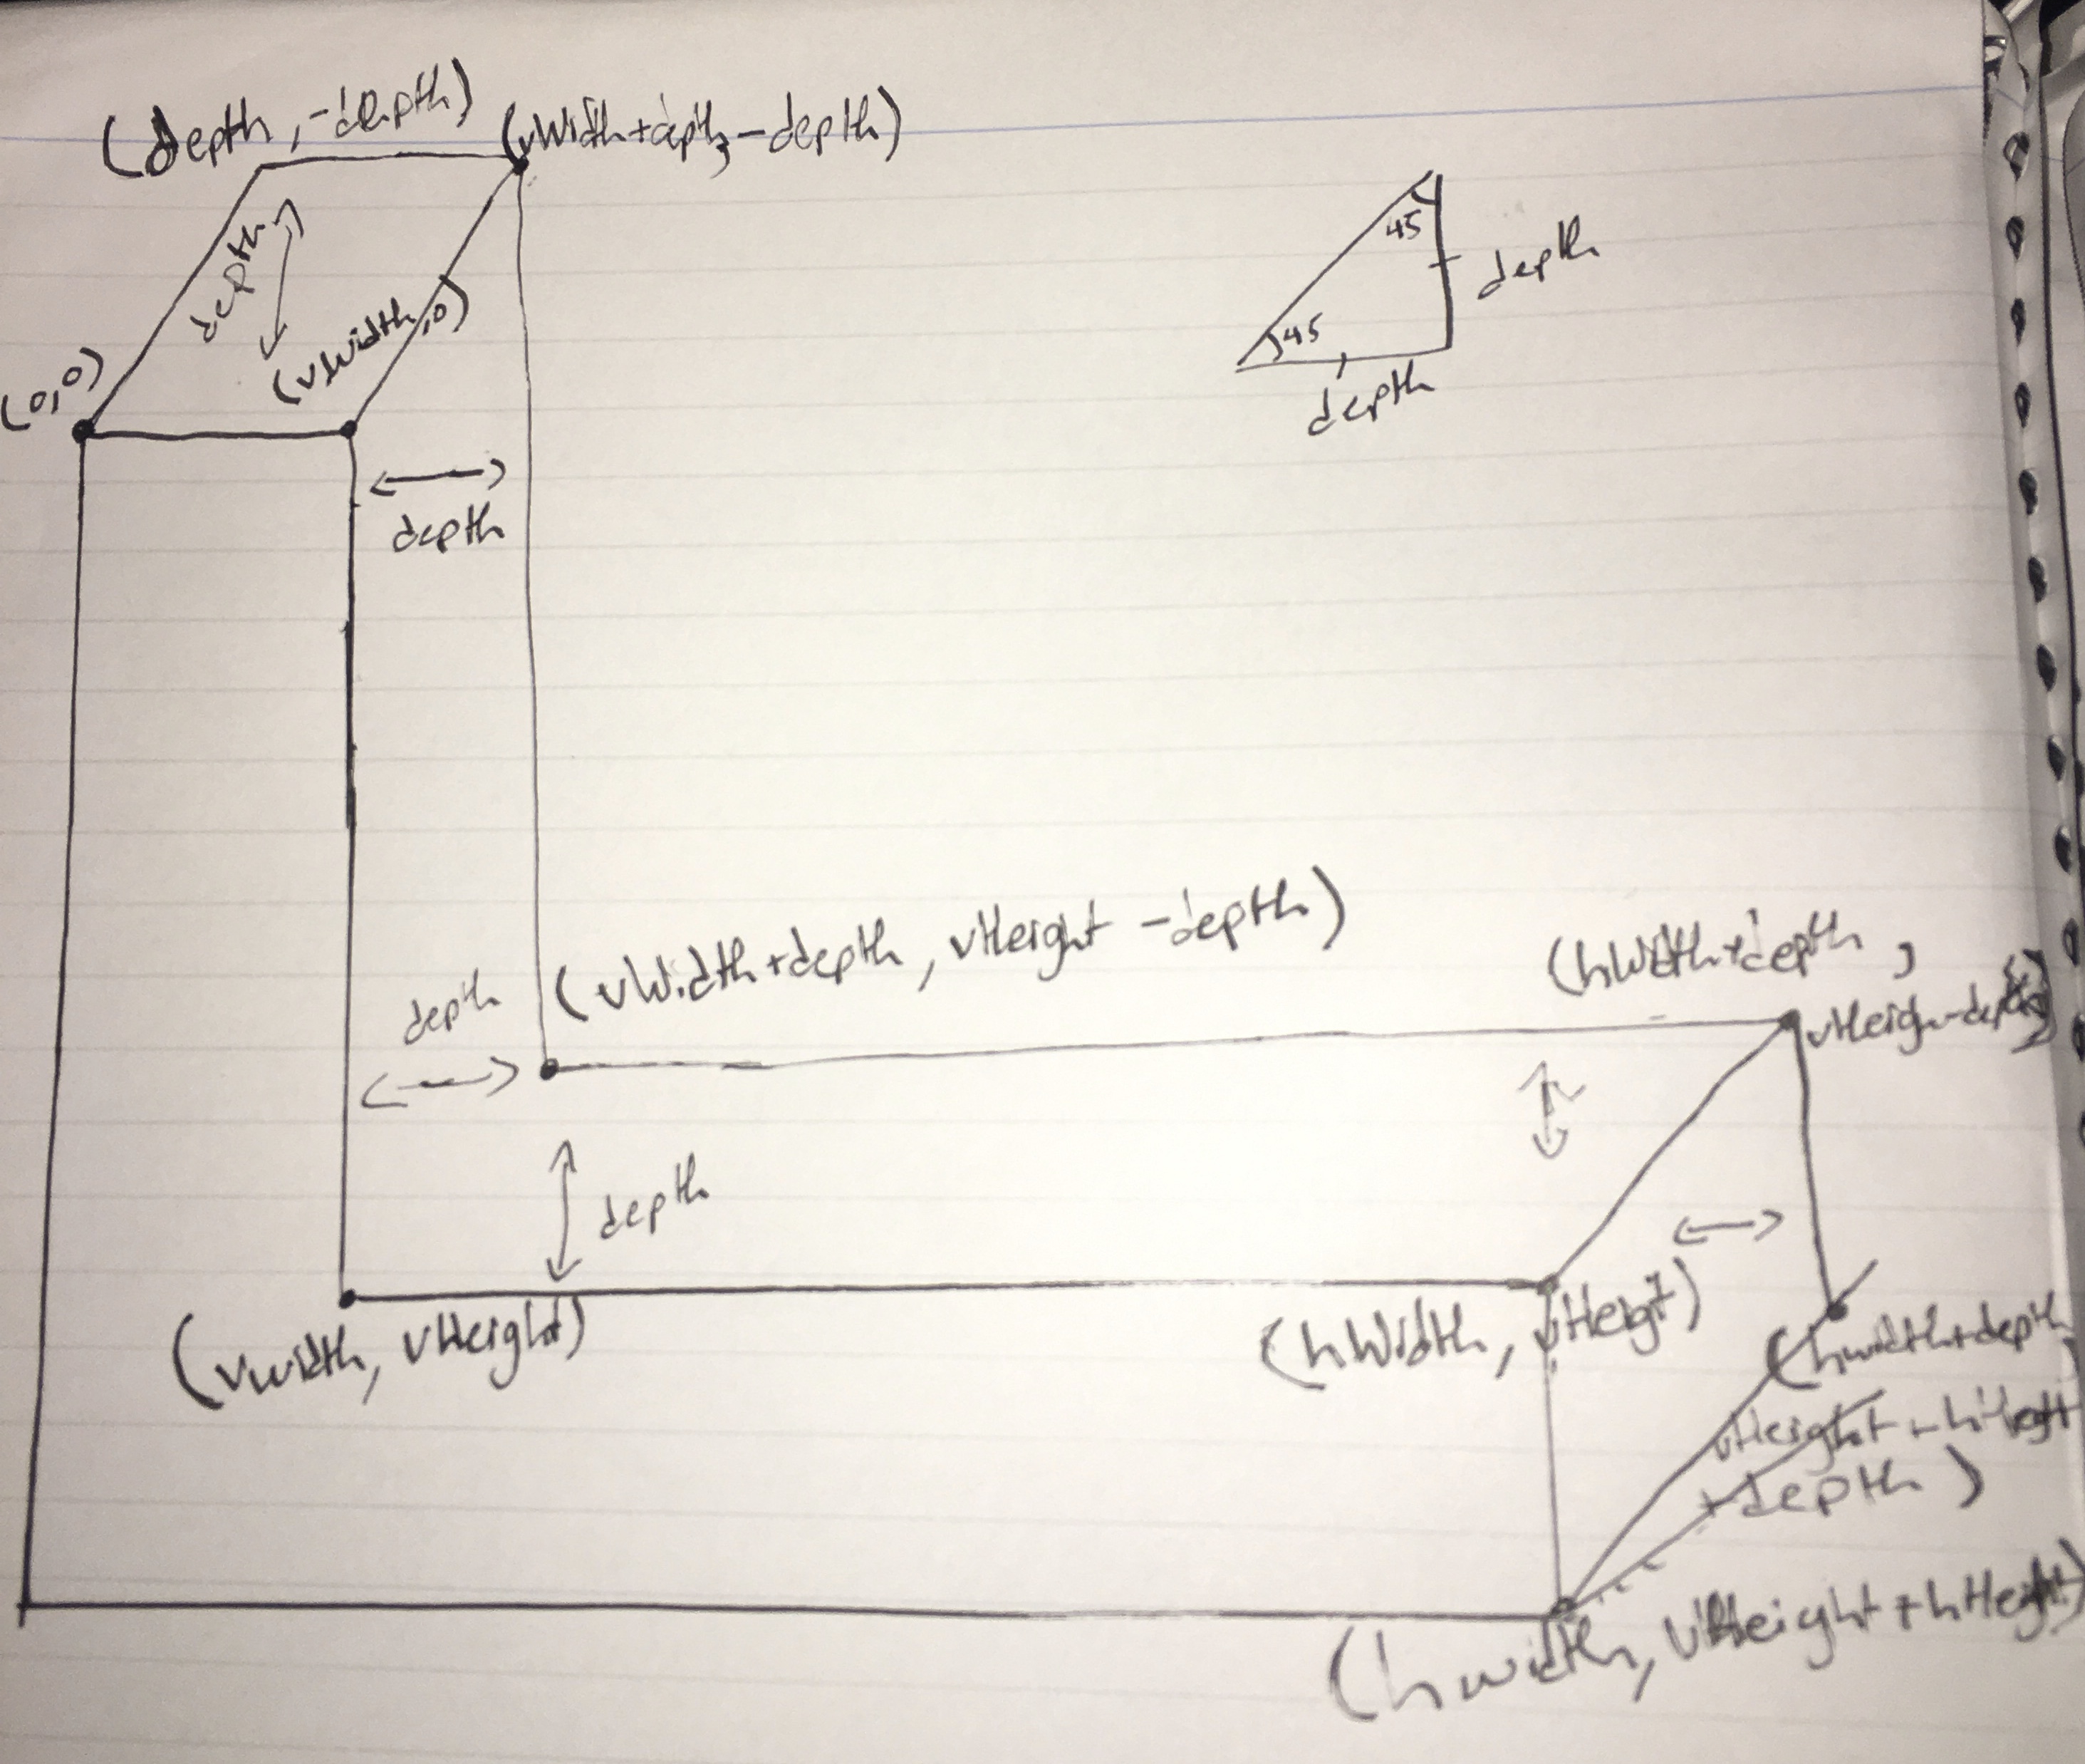 (depth, -depth)
(vWidth+depth, -depth)
depth
(vWidth, 0)
(0,0)
depth
45
45
depth
depth
(vWidth+depth, vHeight -depth)
(hWidth+depth,
vHeigh-depth)
depth
depth
(vwidth, vHeight)
(hWidth, vHeight)
(hwidth+depth
vHeight
+depth)
(hwidth, vHeight+hHeight)